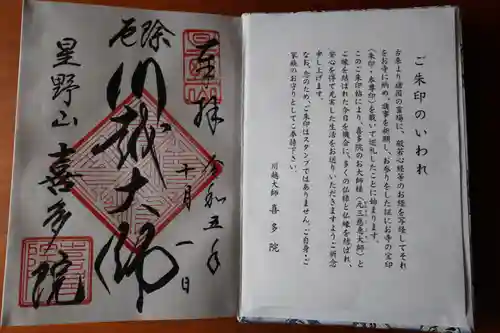 ご朱印のいわれ
古来より諸国の霊場に、般若心経等のお経を写経してそれ
をお寺に納め、諸事を祈願し、お参りをした証にお寺の宝印
（朱印・本尊印）を戴いて巡礼したことに始まります。
このご朱印帖により、喜多院のお大師様（元三慈恵大師）と
ご縁を結ばれた今日を機会に、多くの仏様と仏縁を結ばれ、
安心を得て充実した生活をお送りいただきますようご祈念
申し上げます。
なお、念のため、ご朱印はスタンプではありません。ご自身・ご
家族のお守りとしてご奉持下さい。
川越大師 喜多院
奉拝
令和五年
十月一日
厄除
川越大師
星野山
喜多院